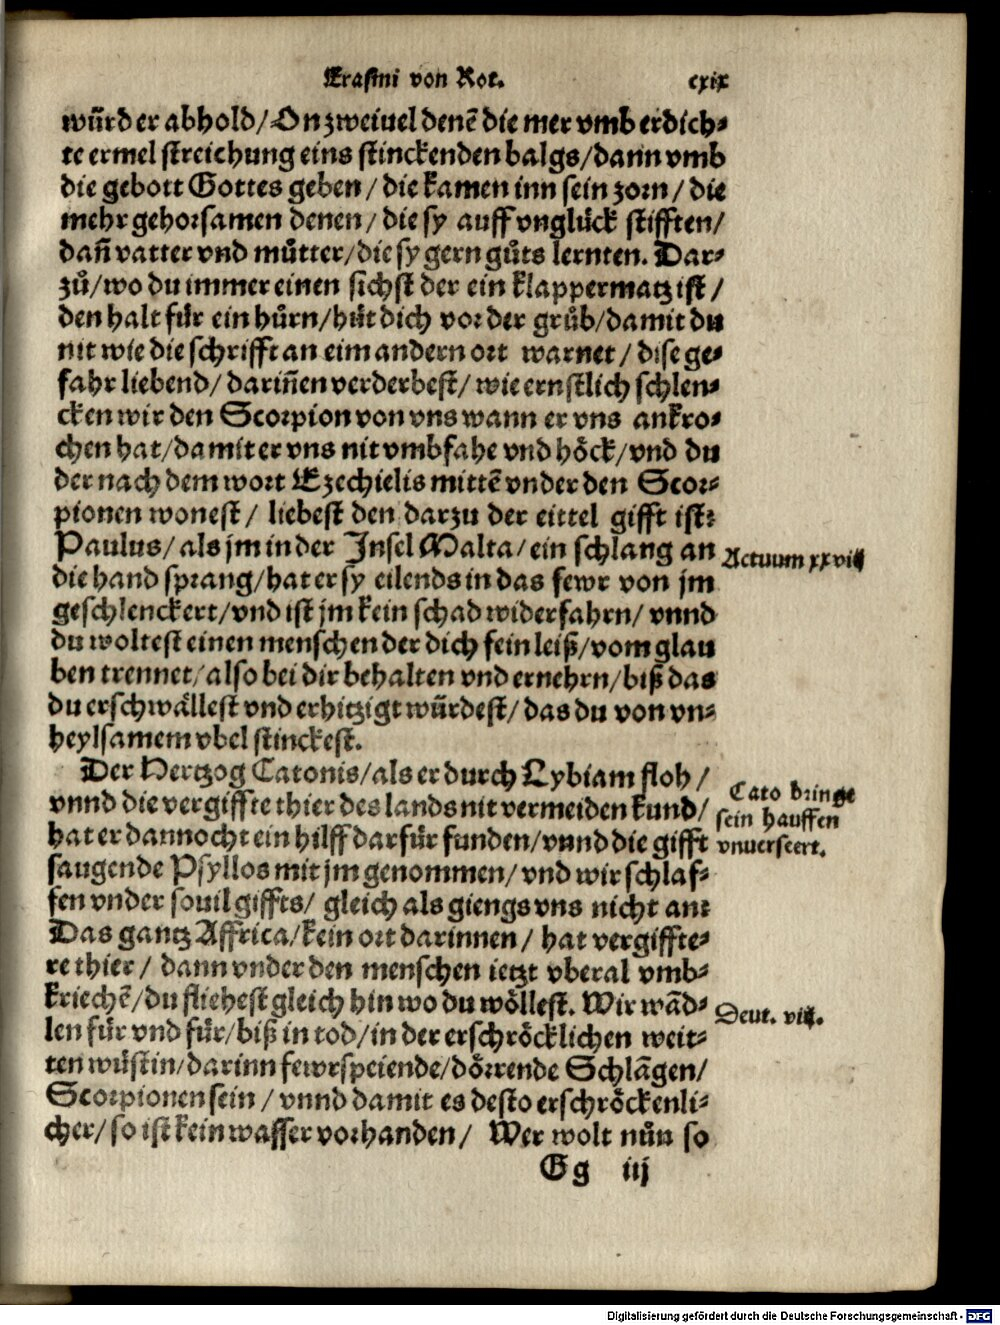 Erasmi von Rot. cxix
wu̎rd er abhold/ On zweiuel denē die mer vmb erdich⸗
te ermel streichung eins stinckenden balgs/ dann vmb
die gebott Gottes geben / die kamen inn sein zorn / die
mehr gehorsamen denen / die sy auff vnglück stifften/
dañ vatter vnd můtter/ die sy gern gůts lernten. Dar⸗
zů/ wo du immer einen sichst der ein klappermatz ist /
den halt für ein hůrn/ hüt dich vor der grůb/ damit du
nit wie die schrifft an eim andern ort warnet / dise ge⸗
fahr liebend/ dariñen verderbest/ wie ernstlich schlen⸗
cken wir den Scorpion von vns wann er vns ankro⸗
chen hat/ damit er vns nit vmbfahe vnd höck/ vnd du
der nach dem wort Ezechielis mittē vnder den Scor⸗
pionen wonest / liebest den darzu der eittel gifft ist?
Paulus/ als jm in der Insel Malta/ ein schlang an
Actuum xxviij
die hand sprang/ hat er sy eilends in das fewr von jm
geschlenckert/ vnd ist jm kein schad widerfahrn/ vnnd
du woltest einen menschen der dich fein leiß/ vom glau
ben trennet/ also bei dir behalten vnd ernehrn/ biß das
du erschwällest vnd erhitzigt würdest/ das du von vn⸗
heylsamem vbel stinckest.
Der Hertzog Catonis/ als er durch Lybiam floh /
Cato bringt
vnnd die vergiffte thier des lands nit vermeiden kund/
sein hauffen
hat er dannocht ein hilff darfür funden/ vnnd die gifft
vnuerseert.
saugende Psyllos mit jm genommen/ vnd wir schlaf⸗
fen vnder souil giffts/ gleich als giengs vns nicht an?
Das gantz Affrica/ kein ort darinnen / hat vergiffte⸗
re thier / dann vnder den menschen ietzt vberal vmb⸗
kriechē/ du fliehest gleich hin wo du wöllest. Wir wād⸗
Deut. viij.
len für vnd für/ biß in tod/ in der erschröcklichen weit⸗
ten wüstin/ darinn fewrspeiende/ dörrende Schlāgen/
Scorpionen sein / vnnd damit es desto erschröckenli⸗
cher/ so ist kein wasser vorhanden / Wer wolt nůn so
Gg iij
Digitalisierung gefördert durch die Deutsche Forschungsgemeinschaft - DFG